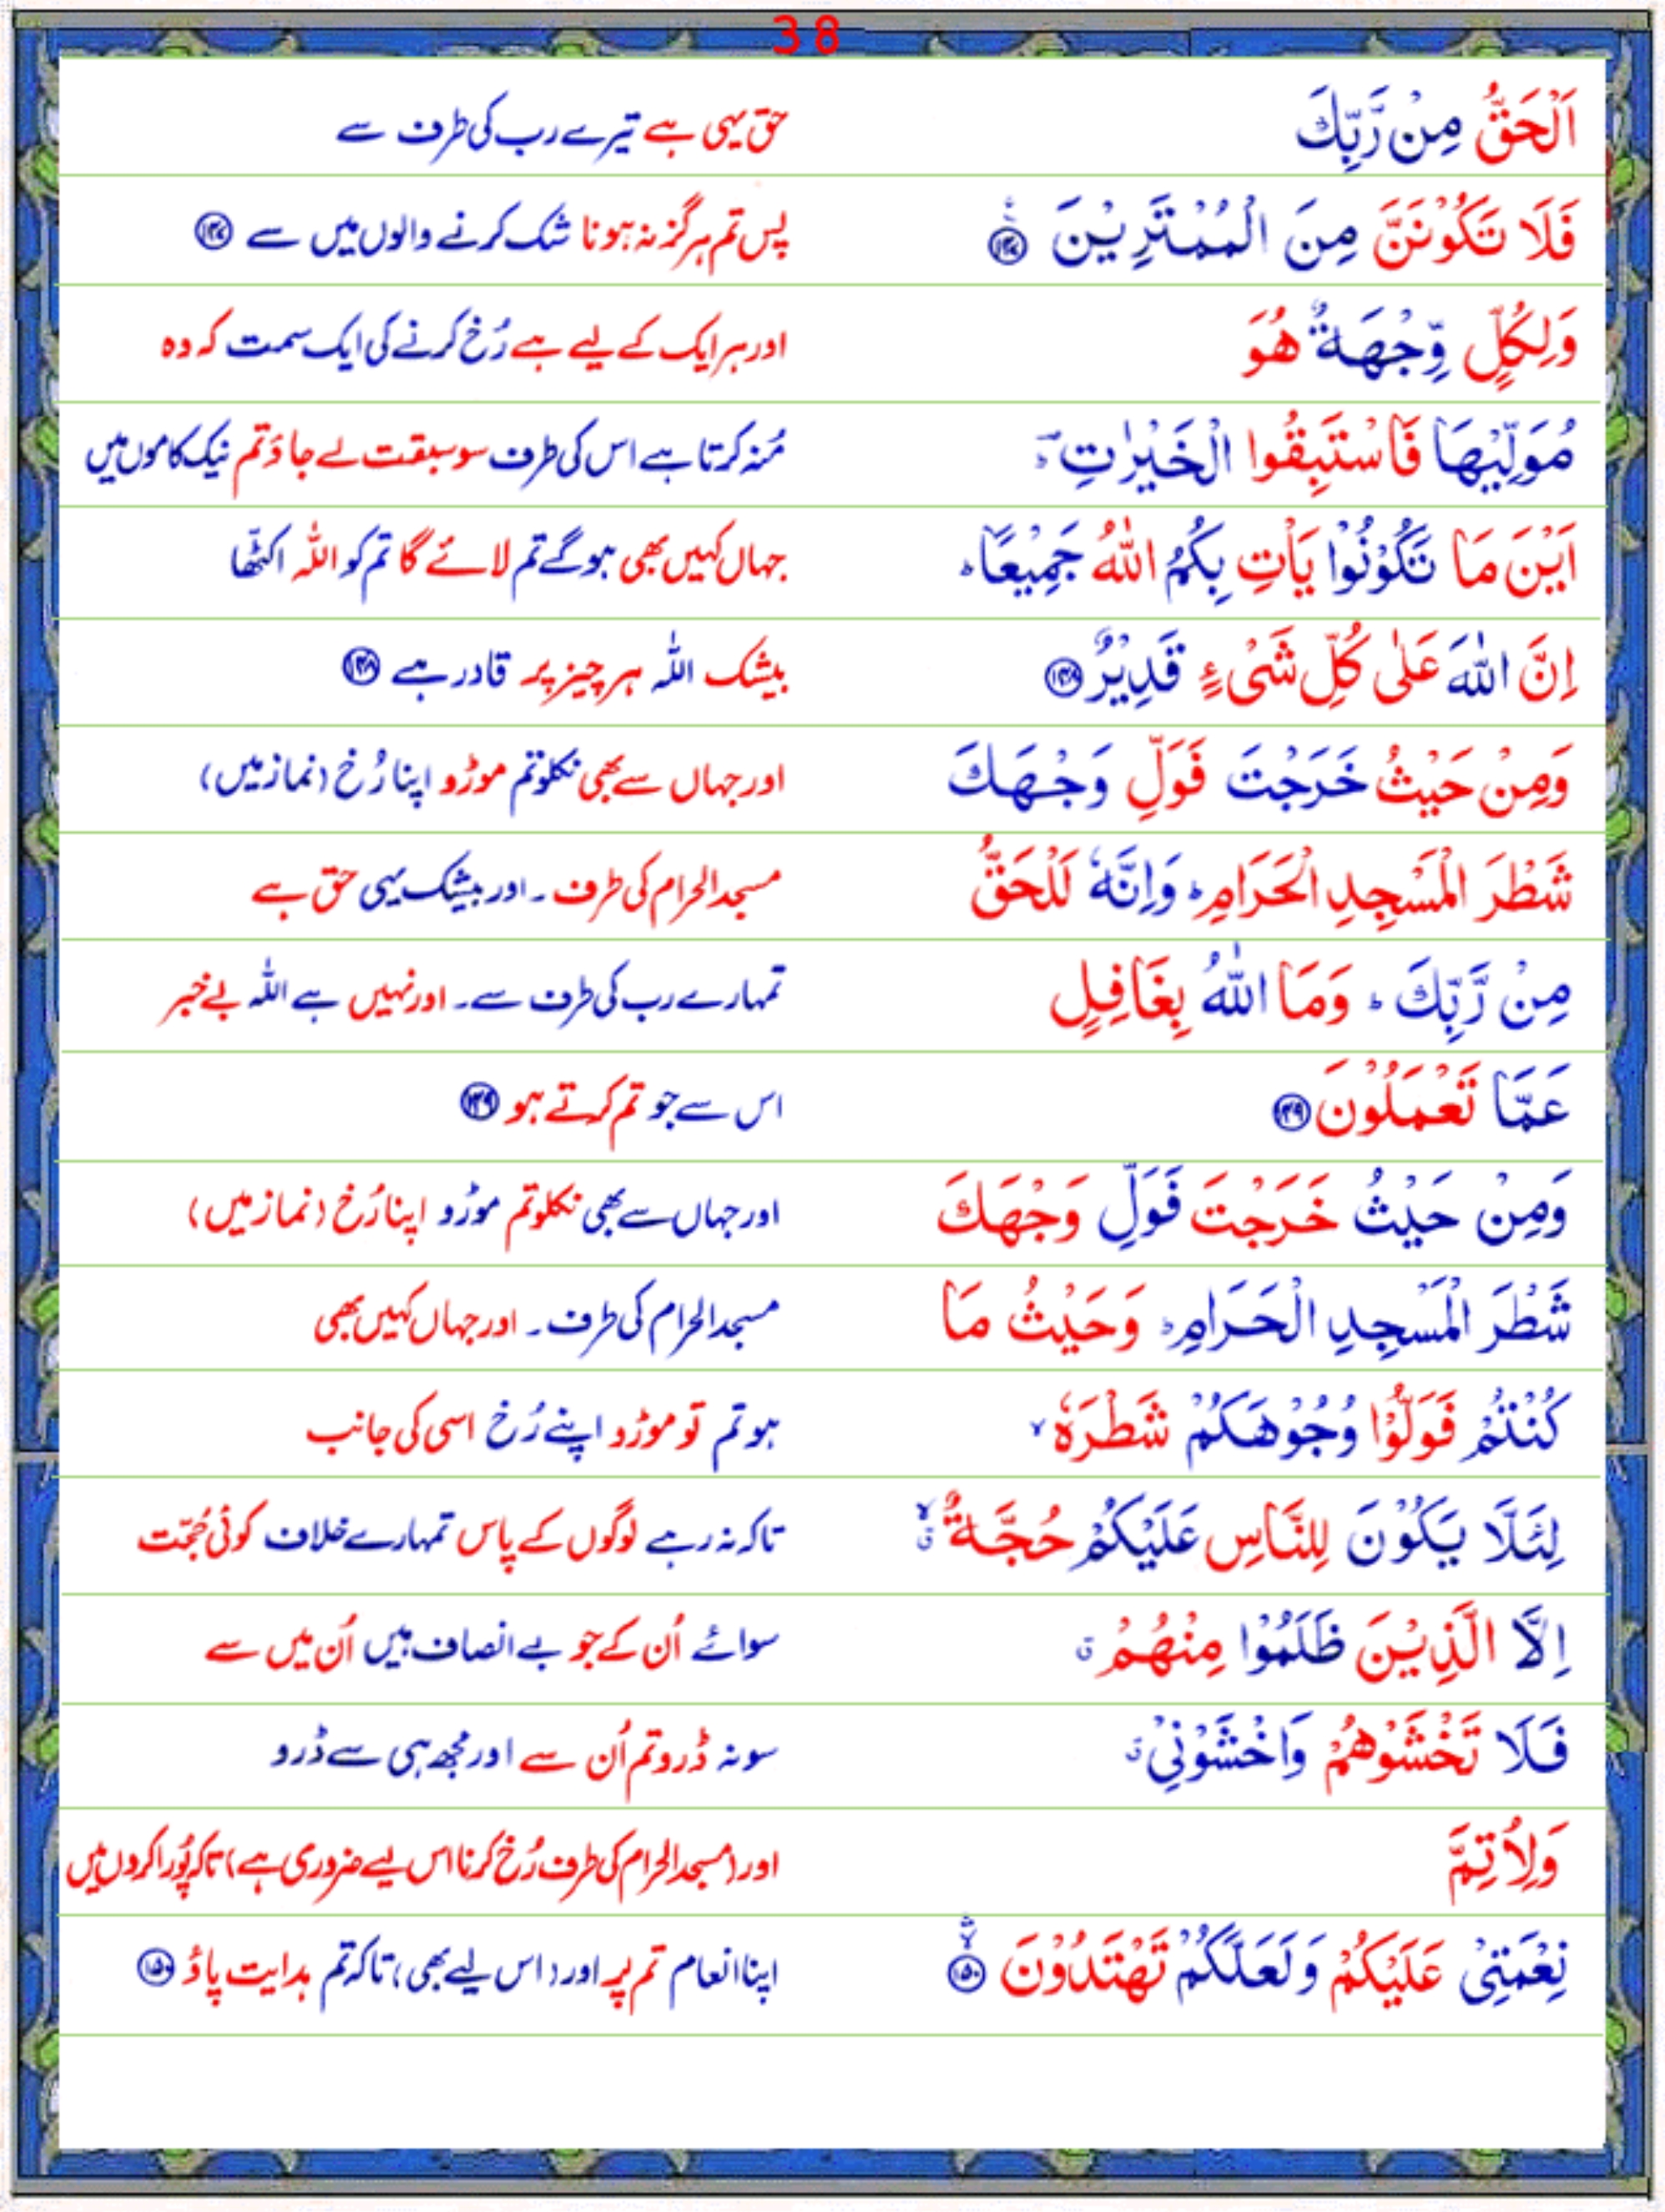 38
اَلْحَقُّ مِنْ رَّبِّكَ حق یہی ہے تیرے رب کی طرف سے
فَلَا تَكُوْنَنَّ مِنَ الْمُمْتَرِيْنَ ۱۴۷ پس تم ہرگز نہ ہونا شک کرنے والوں میں سے ۱۴۷
وَلِكُلٍّ وِّجْهَةٌ هُوَ اور ہر ایک کے لیے ہے رُخ کرنے کی ایک سمت کہ وہ
مُوَلِّيْهَا فَاسْتَبِقُوا الْخَيْرٰتِ ؕ مُنہ کرتا ہے اس کی طرف سو سبقت لے جاؤ تم نیک کاموں میں
اَيْنَ مَا تَكُوْنُوْا يَاْتِ بِكُمُ اللّٰهُ جَمِيْعًا ؕ جہاں کہیں بھی ہوگے تم لائے گا تم کو اللہ اکٹھّا
اِنَّ اللّٰهَ عَلٰى كُلِّ شَيْءٍ قَدِيْرٌ ۱۴۸ بیشک اللہ ہر چیز پر قادر ہے ۱۴۸
وَمِنْ حَيْثُ خَرَجْتَ فَوَلِّ وَجْهَكَ اور جہاں سے بھی نکلو تم موڑو اپنا رُخ (نماز میں)
شَطْرَ الْمَسْجِدِ الْحَرَامِ ؕ وَاِنَّهٗ لَلْحَقُّ مسجد الحرام کی طرف ۔ اور بیشک یہی حق ہے
مِنْ رَّبِّكَ ؕ وَمَا اللّٰهُ بِغَافِلٍ تمہارے رب کی طرف سے۔ اور نہیں ہے اللہ بے خبر
عَمَّا تَعْمَلُوْنَ ۱۴۹ اس سے جو تم کرتے ہو ۱۴۹
وَمِنْ حَيْثُ خَرَجْتَ فَوَلِّ وَجْهَكَ اور جہاں سے بھی نکلو تم موڑو اپنا رُخ (نماز میں)
شَطْرَ الْمَسْجِدِ الْحَرَامِ ؕ وَحَيْثُ مَا مسجد الحرام کی طرف ۔ اور جہاں کہیں بھی
كُنْتُمْ فَوَلُّوْا وُجُوْهَكُمْ شَطْرَهٗ ۙ ہو تم تو موڑو اپنے رُخ اسی کی جانب
لِئَلَّا يَكُوْنَ لِلنَّاسِ عَلَيْكُمْ حُجَّةٌ ۙ ق تاکہ نہ رہے لوگوں کے پاس تمہارے خلاف کوئی حُجّت
اِلَّا الَّذِيْنَ ظَلَمُوْا مِنْهُمْ ق سوائے اُن کے جو بے انصاف ہیں اُن میں سے
فَلَا تَخْشَوْهُمْ وَاخْشَوْنِيْ ق سو نہ ڈرو تم اُن سے اور مجھ ہی سے ڈرو
وَلِاُتِمَّ اور (مسجد الحرام کی طرف رُخ کرنا اس لیے ضروری ہے) تاکہ پُورا کردوں میں
نِعْمَتِيْ عَلَيْكُمْ وَلَعَلَّكُمْ تَهْتَدُوْنَ ۱۵۰ اپنا انعام تم پر اور (اس لیے بھی) تاکہ تم ہدایت پاؤ ۱۵۰